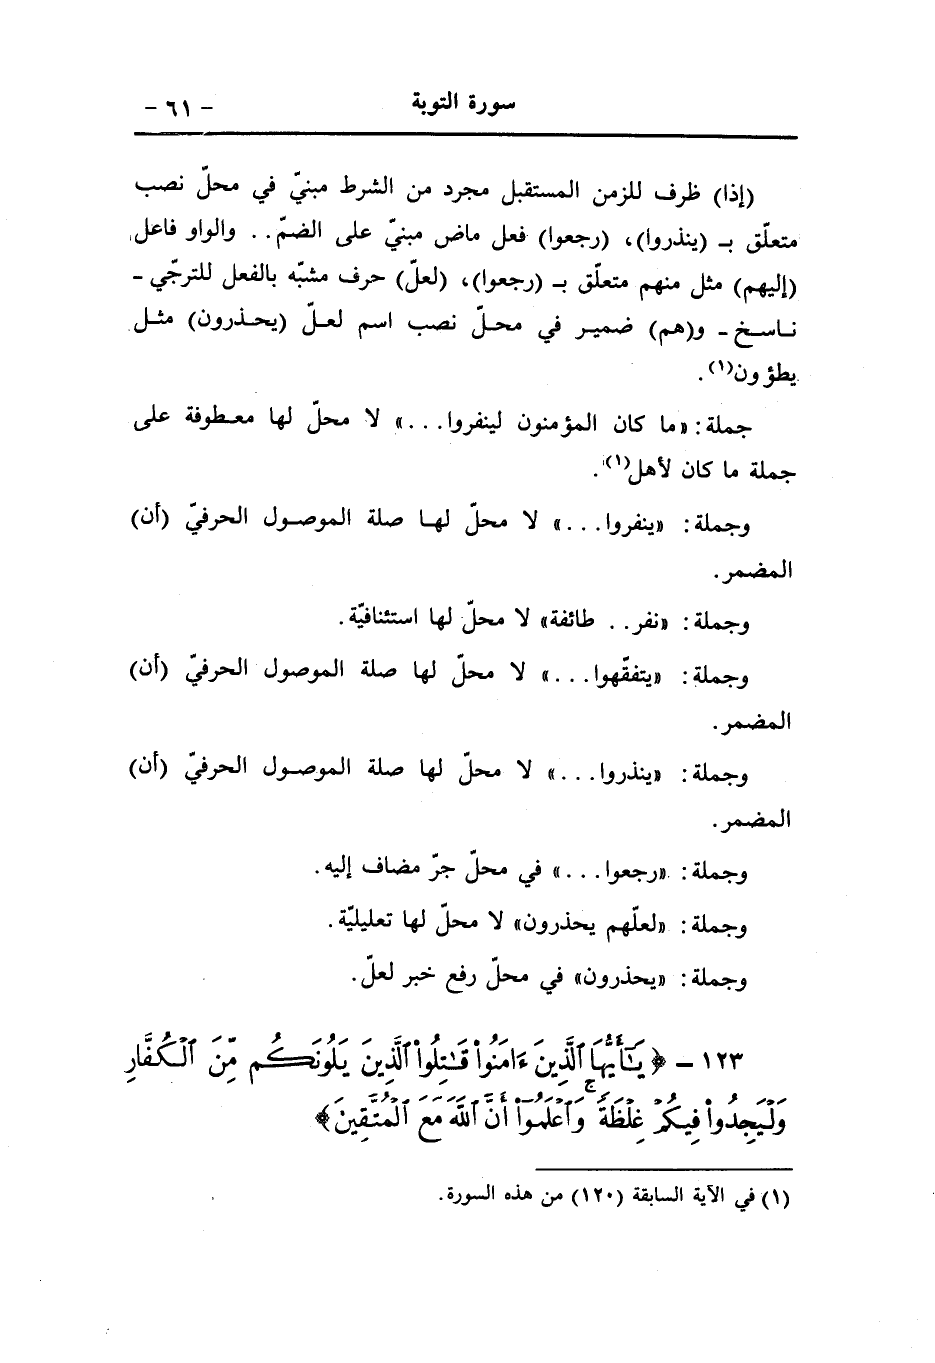 سورة التوبة
- ٦١ -
(إذا) ظرف للزمن المستقبل مجرد من الشرط مبنيّ في محلّ نصب
متعلّق بـ (ينذروا)، (رجعوا) فعل ماض مبنيّ على الضمّ.. والواو فاعل
(إليهم) مثل منهم متعلّق بـ (رجعوا)، (لعلّ) حرف مشبّه بالفعل للترجّي -
ناسخ - و(هم) ضمير في محلّ نصب اسم لعلّ (يحذرون) مثل
يطؤون(١).
جملة: «ما كان المؤمنون لينفروا...» لا محلّ لها معطوفة على
جملة ما كان لأهل(١).
وجملة: «ينفروا...» لا محلّ لها صلة الموصول الحرفيّ (أن)
المضمر.
وجملة: «نفر.. طائفة» لا محلّ لها استئنافيّة.
وجملة: «يتفقّهوا...» لا محلّ لها صلة الموصول الحرفيّ (أن)
المضمر.
وجملة: «ينذروا...» لا محلّ لها صلة الموصول الحرفيّ (أن)
المضمر.
وجملة: «رجعوا...» في محلّ جرّ مضاف إليه.
وجملة: «لعلّهم يحذرون» لا محلّ لها تعليليّة.
وجملة: «يحذرون» في محلّ رفع خبر لعلّ.
١٢٣ - ﴿يَٰٓأَيُّهَا ٱلَّذِينَ ءَامَنُوا۟ قَٰتِلُوا۟ ٱلَّذِينَ يَلُونَكُم مِّنَ ٱلْكُفَّارِ
وَلْيَجِدُوا۟ فِيكُمْ غِلْظَةً ۚ وَٱعْلَمُوٓا۟ أَنَّ ٱللَّهَ مَعَ ٱلْمُتَّقِينَ﴾
(١) في الآية السابقة (١٢٠) من هذه السورة.